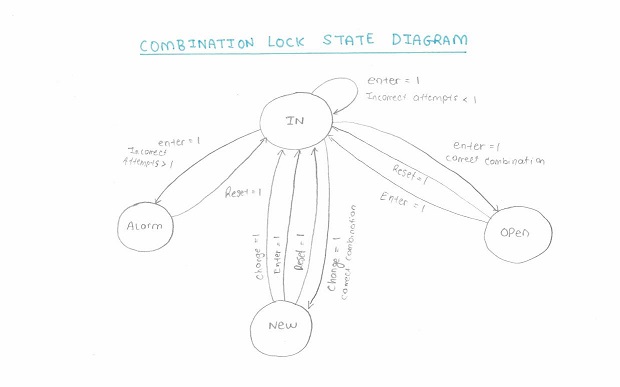 COMBINATION LOCK STATE DIAGRAM
enter = 1
Incorrect attempts < 1
IN
enter = 1
Incorrect
Attempts > 1
enter = 1
correct combination
Reset = 1
Reset = 1
Enter = 1
Alarm
Open
Change = 1
Enter = 1
Reset = 1
Change = 1
correct combination
New